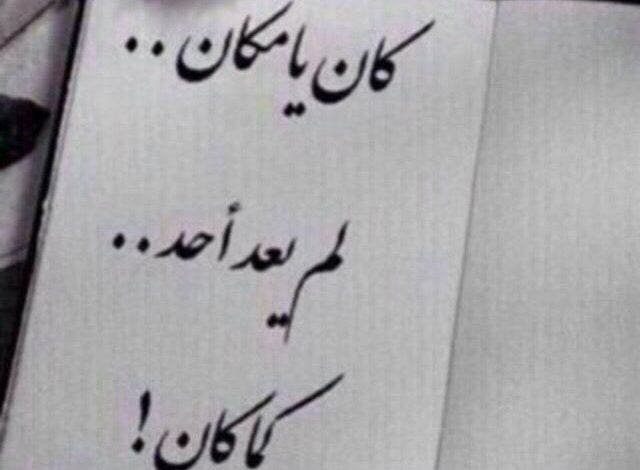 كان يامكان ..
لم يعد أحد ..
كما كان !